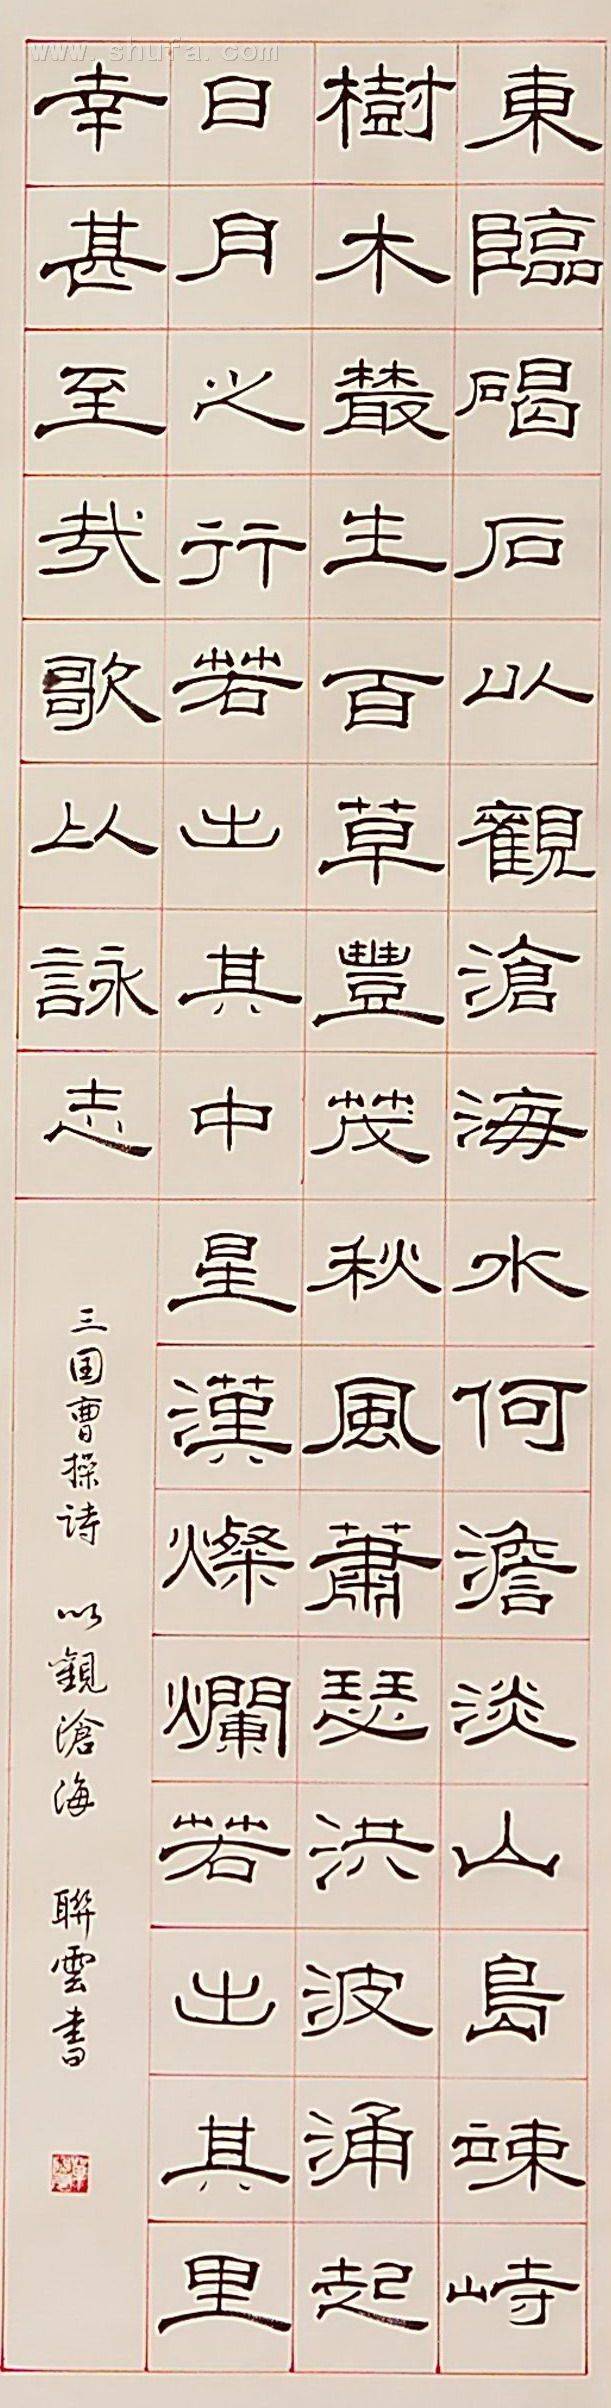 www.shufa.com
東臨碣石以觀滄海水何澹淡山島竦峙
樹木叢生百草豐茂秋風蕭瑟洪波涌起
日月之行若出其中星漢燦爛若出其里
幸甚至哉歌以詠志
三国曹操诗 以觀滄海 聯雲書